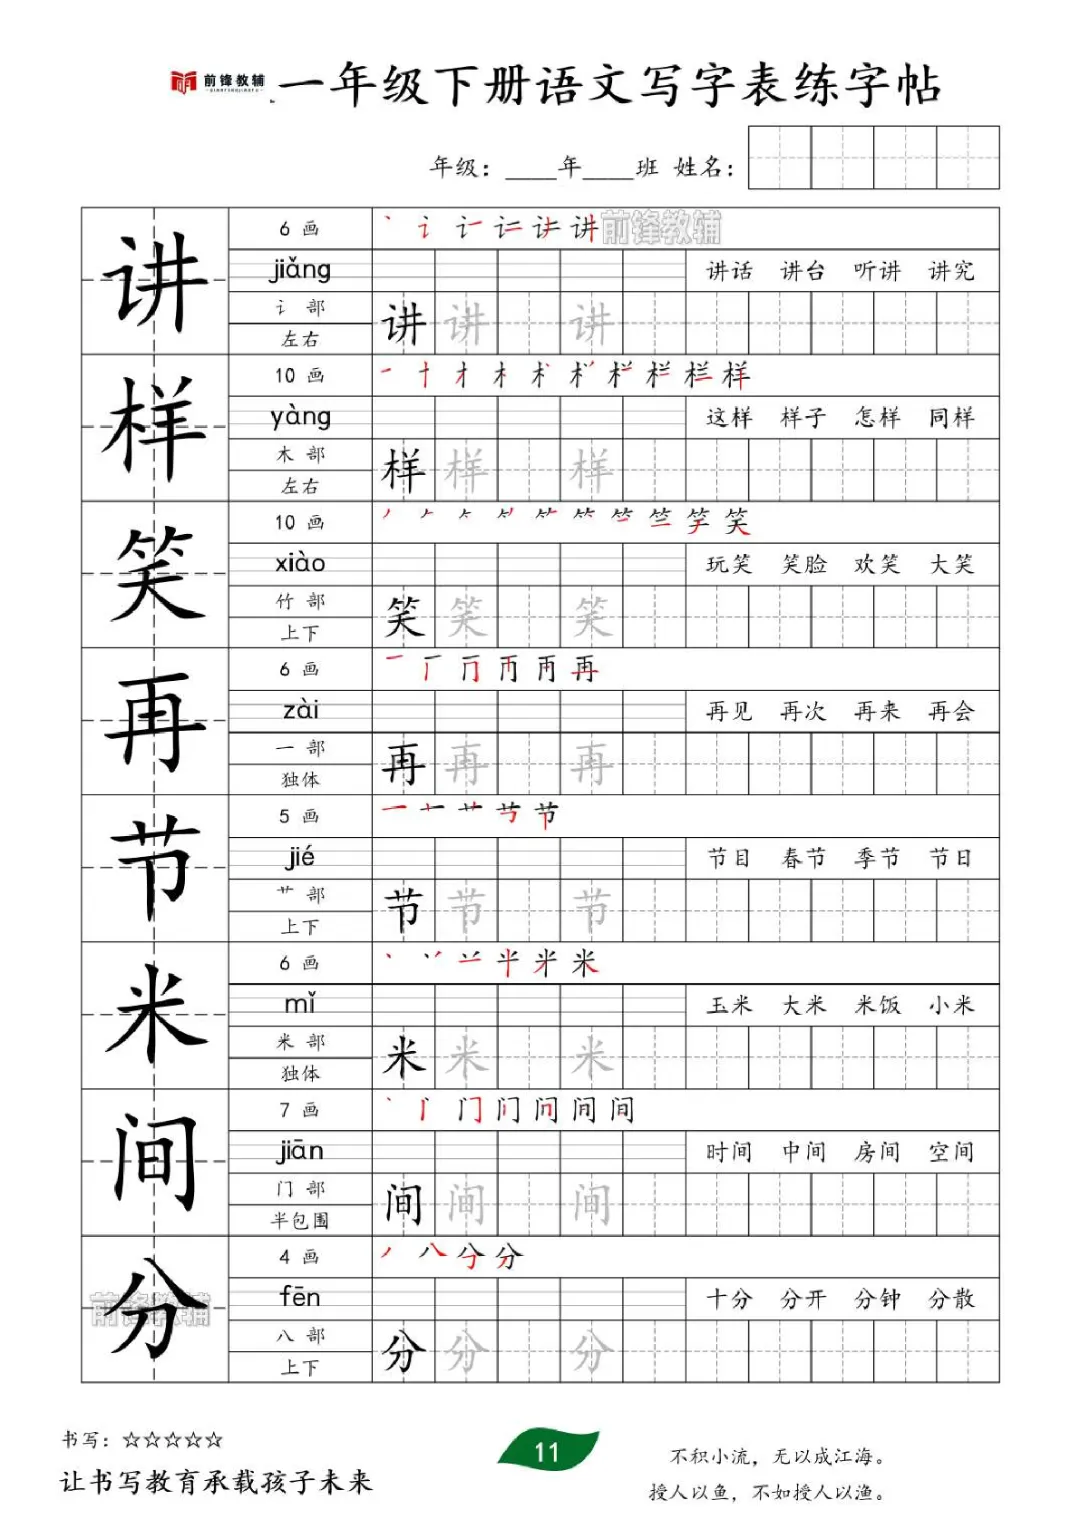 前锋教辅
一年级下册语文写字表练字帖
年级：____年____班 姓名：
讲
6 画
前锋教辅
jiǎng
讲话 讲台 听讲 讲究
讠 部
讲 讲 讲
左右
样
10 画
yàng
这样 样子 怎样 同样
木 部
样 样 样
左右
笑
10 画
xiào
玩笑 笑脸 欢笑 大笑
竹 部
笑 笑 笑
上下
再
6 画
zài
再见 再次 再来 再会
一 部
再 再 再
独体
节
5 画
jié
节目 春节 季节 节日
艹 部
节 节 节
上下
米
6 画
mǐ
玉米 大米 米饭 小米
米 部
米 米 米
独体
间
7 画
jiān
时间 中间 房间 空间
门 部
间 间 间
半包围
分
前锋教辅
4 画
fēn
十分 分开 分钟 分散
八 部
分 分 分
上下
书写：☆☆☆☆☆
让书写教育承载孩子未来
11
不积小流，无以成江海。
授人以鱼，不如授人以渔。